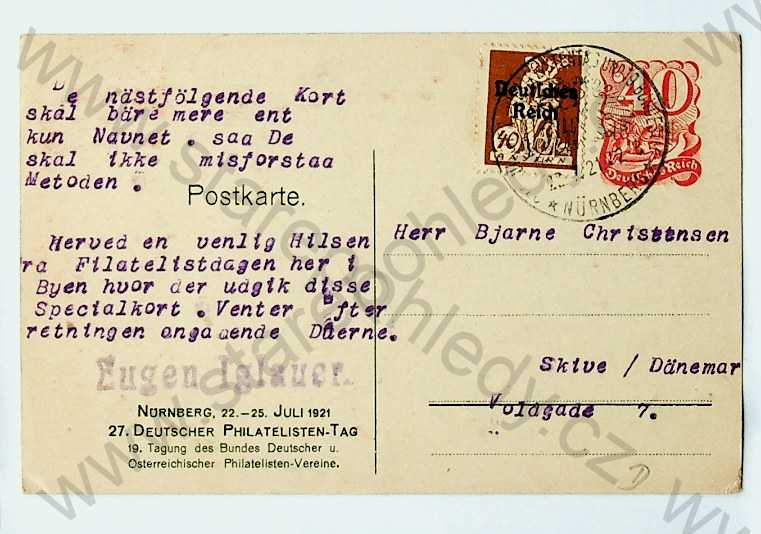 De næstfölgende Kort
skal bäre mere ent
kun Navnet . saa De
skal ikke misforstaa
Metoden .
Postkarte.
Herved en venlig Hilsen
ra Filatelistdagen her i
Byen hvor der udgik disse
Specialkort . Venter Efter
retningen angaaende Däerne.
Eugen Iglauer.
NÜRNBERG, 22.–25. JULI 1921
27. DEUTSCHER PHILATELISTEN-TAG
19. Tagung des Bundes Deutscher u.
Österreichischer Philatelisten-Vereine.
Deutsches
Reich
40
40
Deutsches Reich
NÜRNBERG
Herr Bjarne Christensen
Skive / Dänemar
Voldgade 7.
www.starepohledy.cz